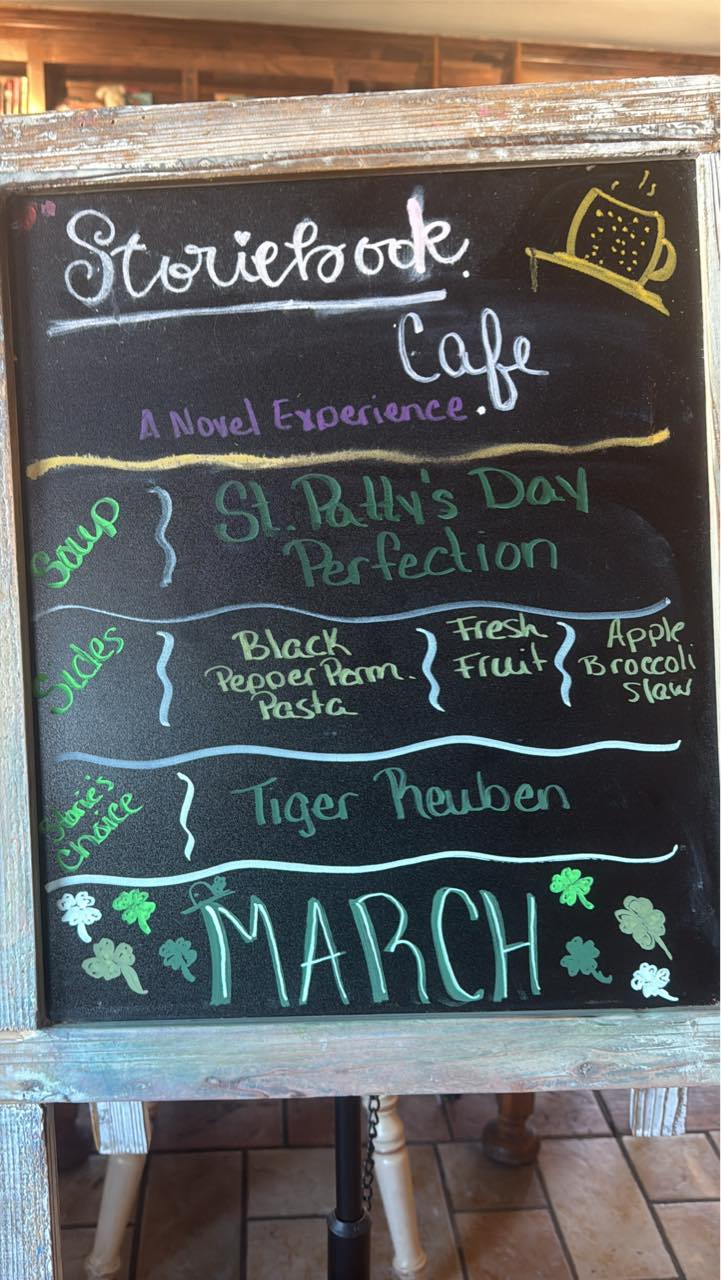 Storiebook
Cafe
A Novel Experience.
Soup
St. Patty's Day
Perfection
Sides
Black
Pepper Parm.
Pasta
Fresh
Fruit
Apple
Broccoli
Slaw
Storie's
Choice
Tiger Reuben
MARCH